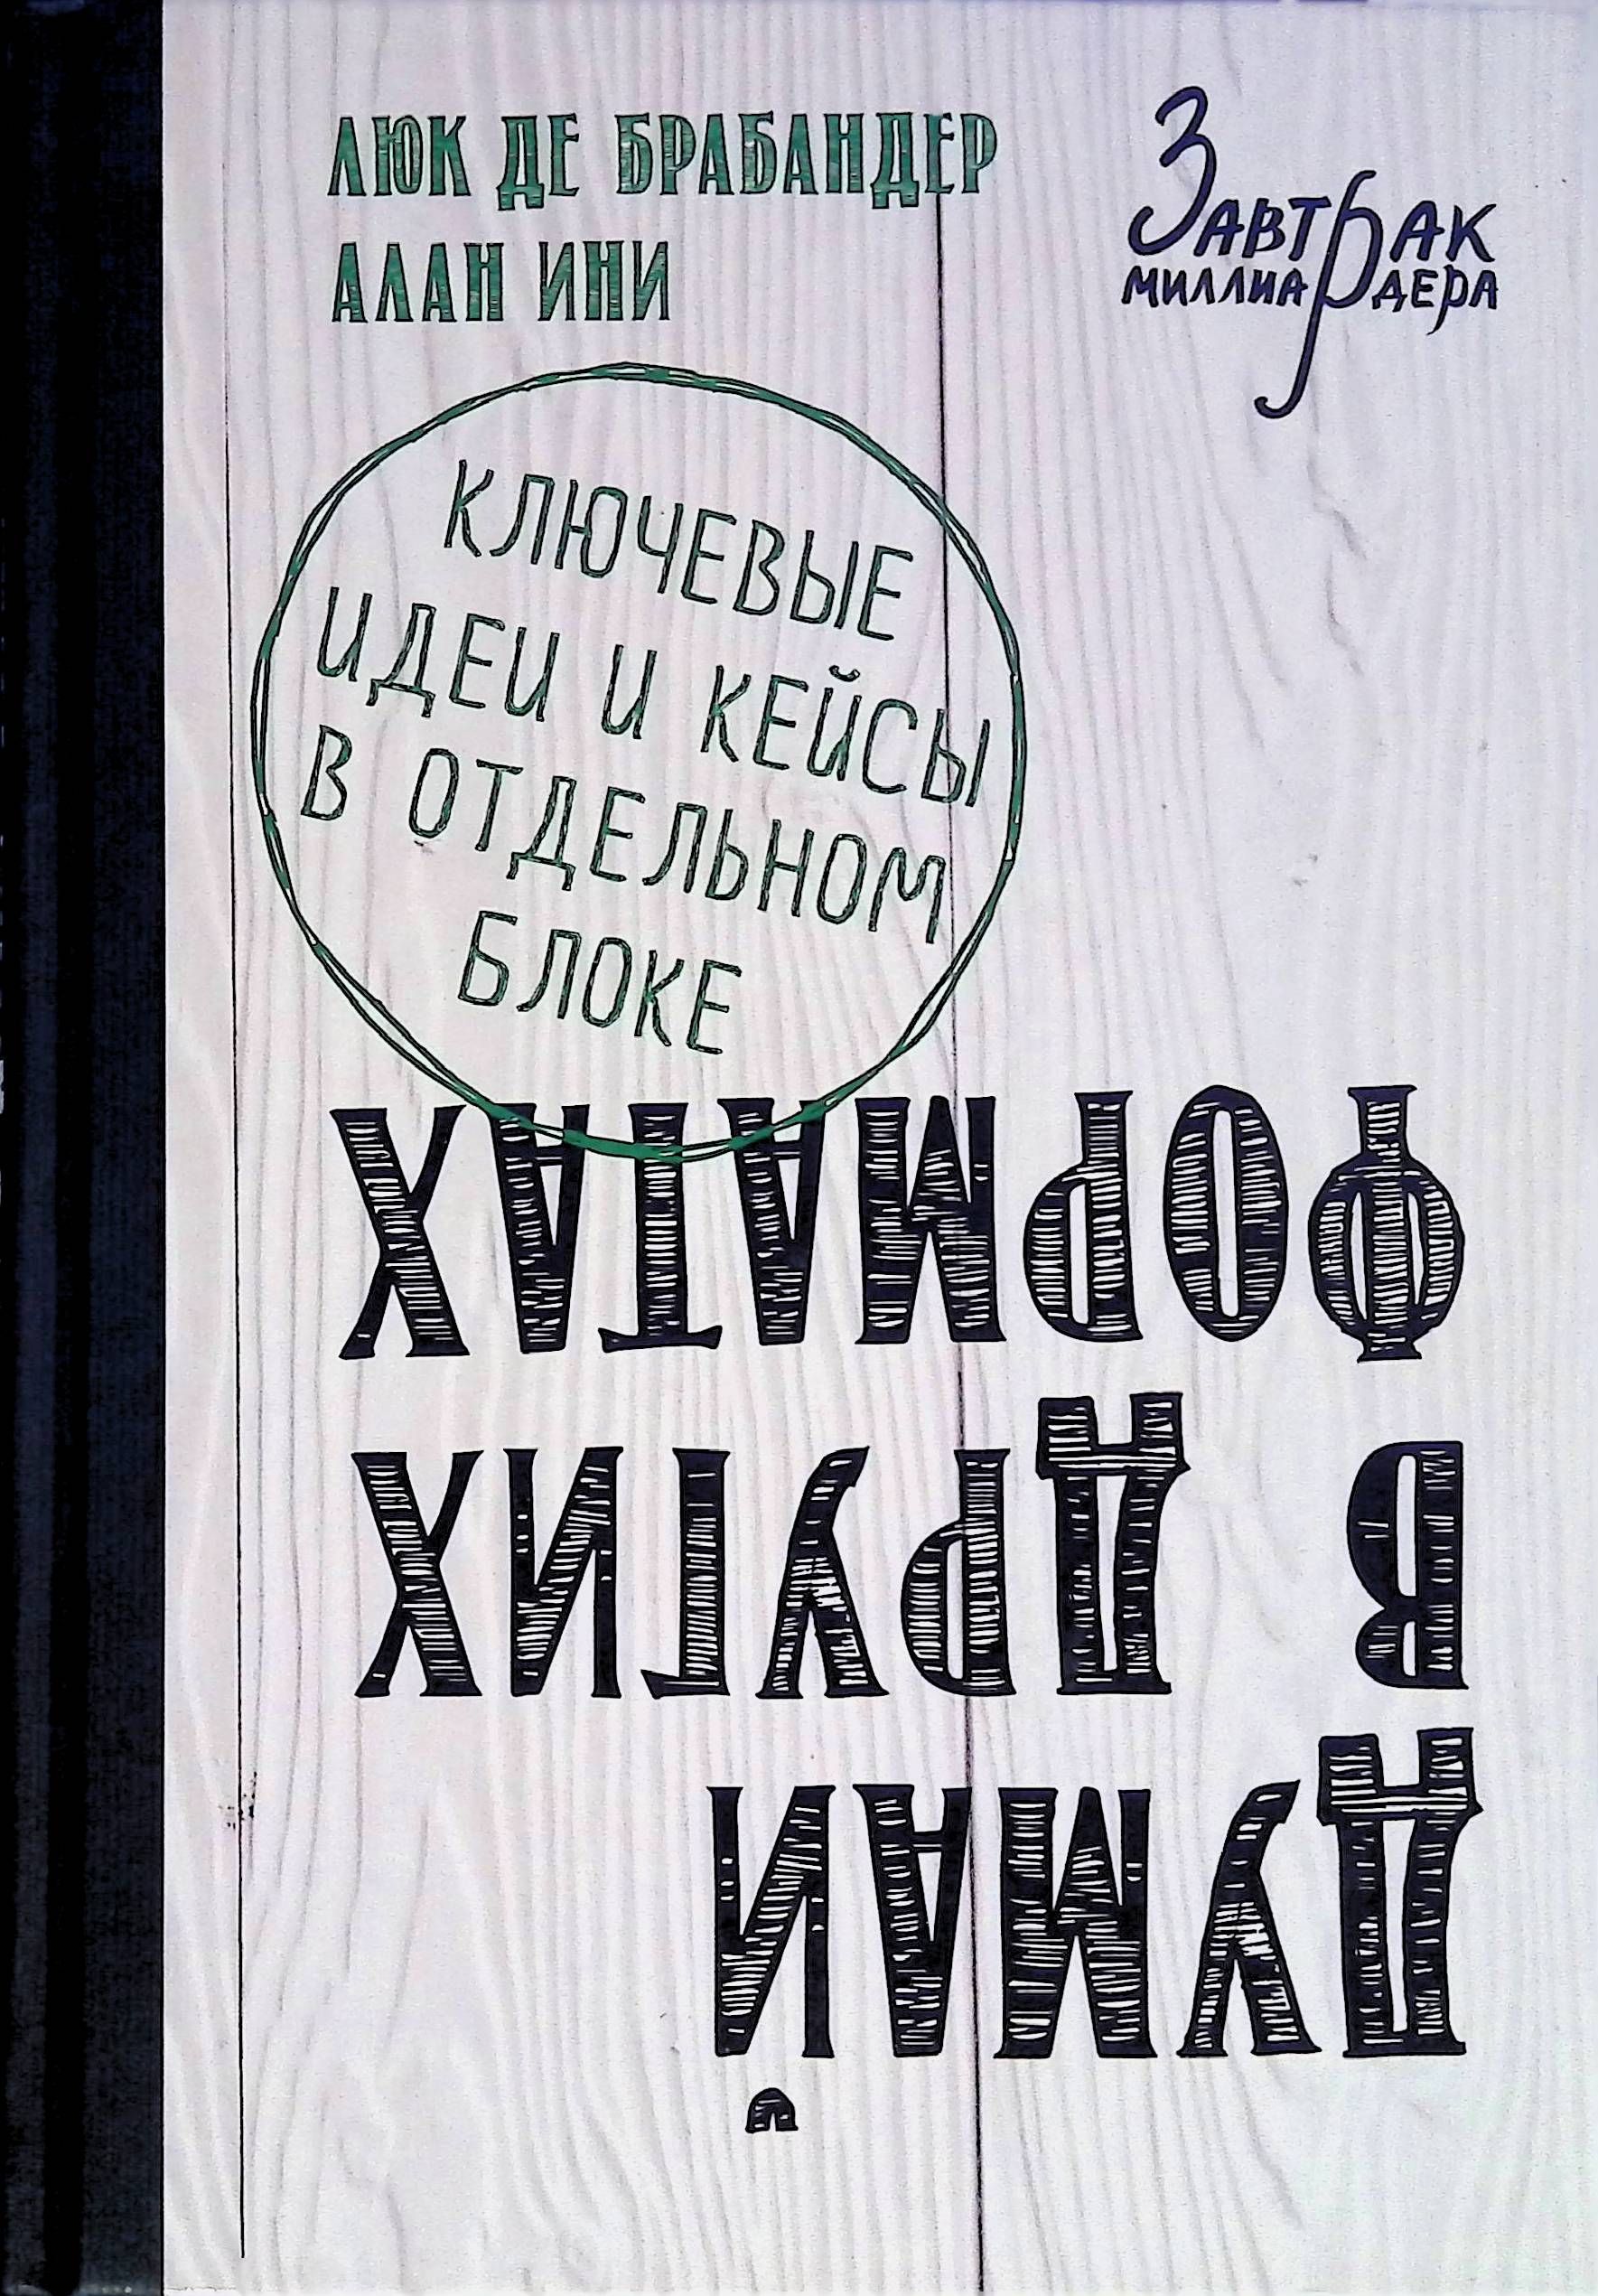 ЛЮК ДЕ БРАБАНДЕР
АЛАН ИНИ
ЗАВТРАК
МИЛЛИАРДЕРА
КЛЮЧЕВЫЕ
ИДЕИ И КЕЙСЫ
В ОТДЕЛЬНОМ
БЛОКЕ
ДУМАЙ
В ДРУГИХ
ФОРМАТАХ